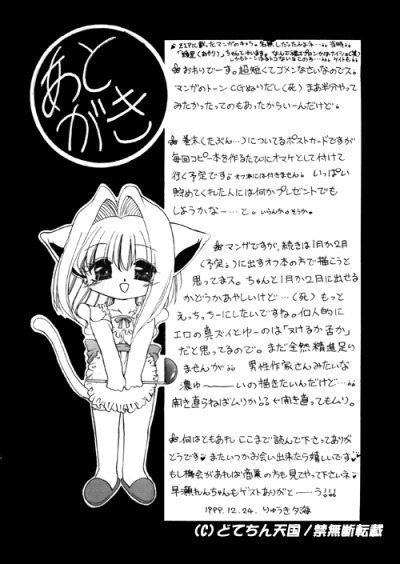 あと
がき
おわりでーす。超短くてゴメンなさいなのでス。
マンガのトーンCGぬりだし(死)まあ半分やって
みたかったってのもあったからいーんだけど。
巻末(たぶん…)についてるポストカードですが
毎回コピー本を作るたびにオマケとして付けて
行く予定です。オフ本には付きません。いっぱい
貯めてくれた人には何かプレゼントでも
しようかなー…と。いらんか。そうか。
マンガですが、続きは1月か2月
(予定)に出すオフ本の方で描こうと
思ってまス。ちゃんと1月か2月に出せる
かどうかあやしいけど…(死)もっと
えっちぅーにしたいですね。個人的に
エロの真ズイとゆーのは「ヌけるか否か」
だと思ってるので。まだ全然精進足り
ませんが 男性作家さんみたいな
濃ゅーいの描きたいんだけど…
開き直らねばムリか!←開き直ってもムリ。
何はともあれ ここまで読んで下さってありが
とうです またいつかお会い出来たら嬉しいです
もし機会があれば商業の方も見てやって下さいネ
早瀬れんちゃんもゲストありがとーう!!!
1999.12.24. りゅうき夕海
(C)どてちん天国/禁無断転載